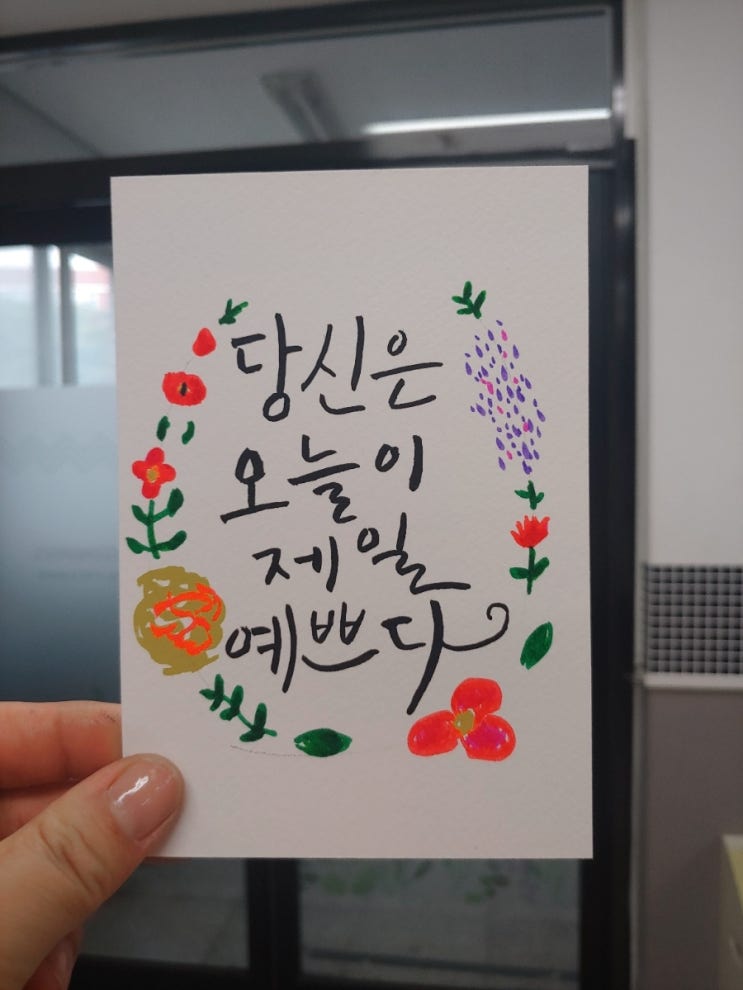 당신은
오늘이
제일
예쁘다